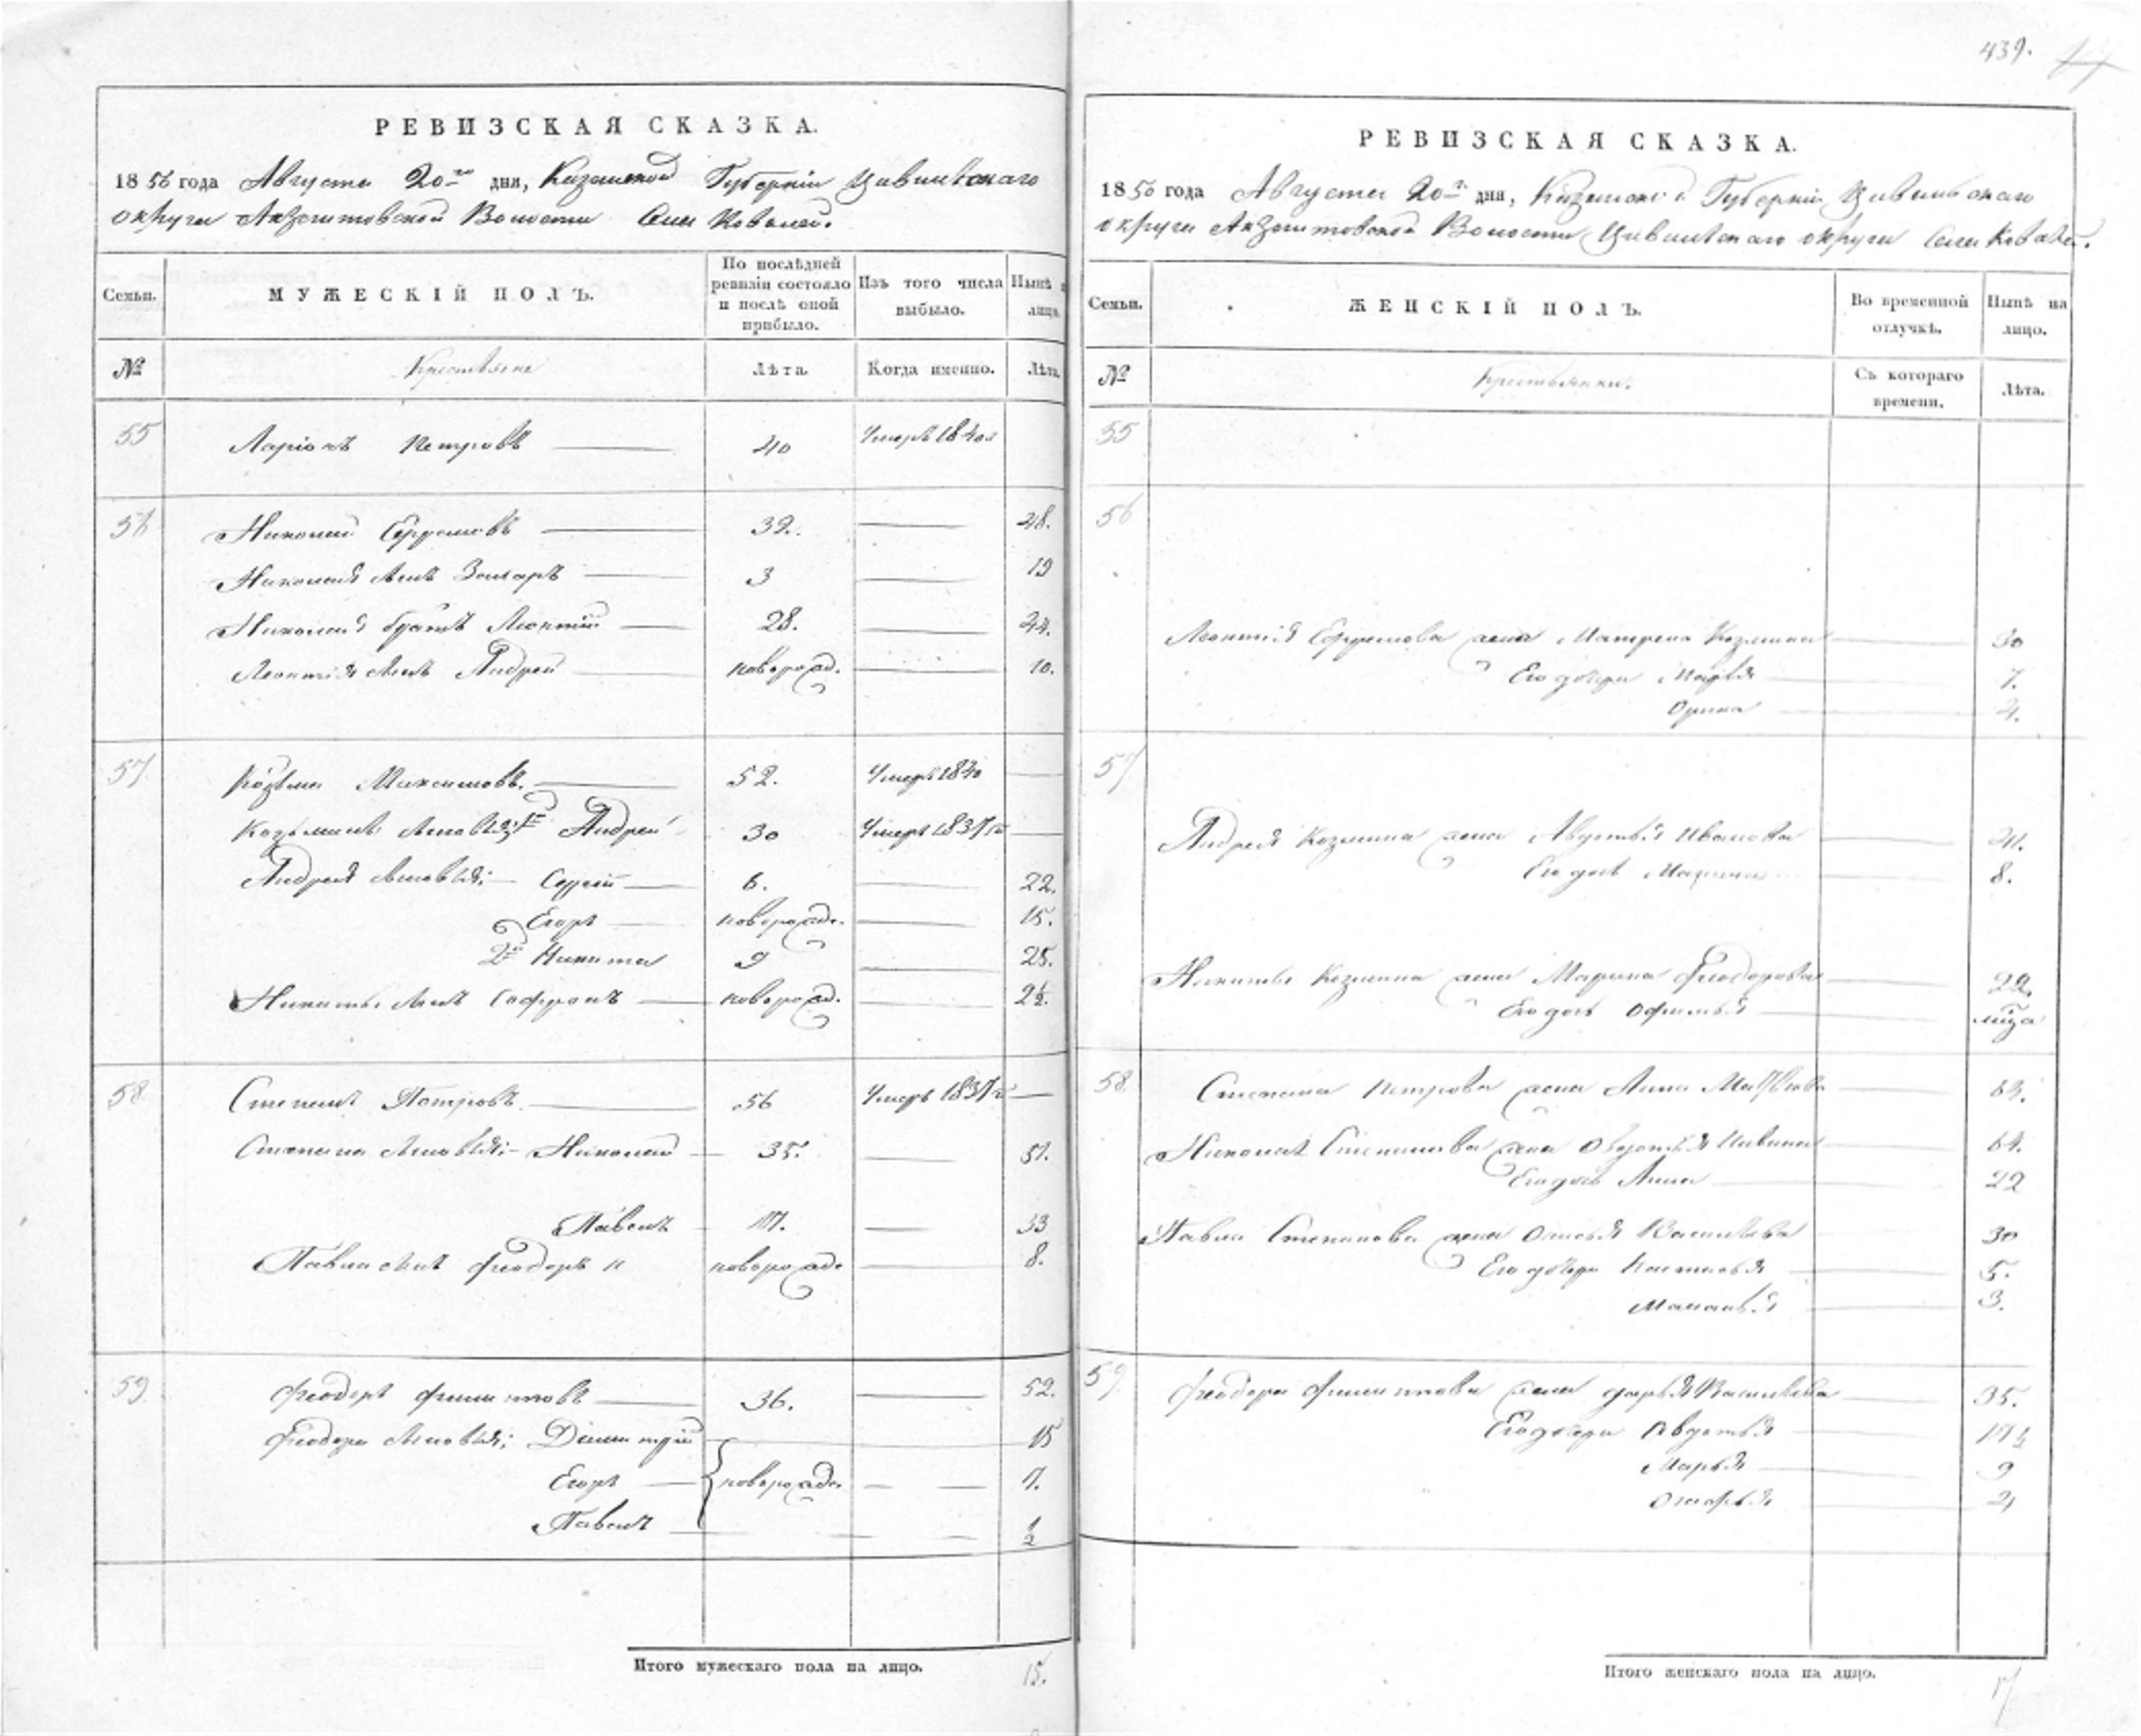 439.
РЕВИЗСКАЯ СКАЗКА.
1850 года Августа 20го дня, Казанской Губернiи Цивильскаго
округи Акзегитовской Волости Села Ковалей.
Семьи. МУЖЕСКIЙ ПОЛЪ. По послѣдней ревизiи состояло и послѣ оной прибыло. Изъ того числа выбыло. Нынѣ лицо.
№ Крестьяне Лѣта. Когда именно. Лѣта.
55 Ларiонъ Петровъ 40 Умеръ 1840
56 Николай Ефремовъ 32. 48.
Николая сынъ Захаръ 3 19
Николая братъ Леонтiй 28. 44.
Леонтiя сынъ Андрей новорожд. 10.
57 Козьма Максимовъ. 52. Умеръ 1840
Козьмины сыновья; 1й Андрей 30 Умеръ 1837го
Андрея сыновья; Сергiй 6. 22.
Егоръ новорожд. 15.
2й Никита 9 25.
Никиты сынъ Софронъ новорожд. 2½.
58 Степанъ Петровъ. 56 Умеръ 1837го
Степана сыновья; Николай 35. 51.
Павелъ 17. 33
Павла сынъ Феодоръ новорожд 8.
59 Феодоръ Филиповъ 36. 52.
Феодора сыновья; Димитрiй 15
Егоръ новорожд. 7.
Павелъ ½
Итого мужескаго пола на лицо. 15.
РЕВИЗСКАЯ СКАЗКА.
1850 года Августа 20го дня, Казанской Губернiи Цивильскаго
округи Акзегитовской Волости Цивильскаго округи Села Ковалей.
Семьи. ЖЕНСКIЙ ПОЛЪ. Во временной отлучкѣ. Нынѣ на лицо.
№ Крестьянки. Съ котораго времени. Лѣта.
55
56
Леонтiя Ефремова жена Матрена Козмина 30
Его дочери Марья 7.
Орина 4.
57
Андрея Козмина жена Авдотья Иванова 41.
Его дочь Марина 8.
Никиты Козмина жена Марина Феодорова 22.
Его дочь Офимья
58 Степана Петрова жена Анна 63.
Николая Степанова жена 64.
Его дочь Анна 22
Павла Степанова жена Васильева 30
Его дочери Настасья 5.
Маланья 3.
59 Феодора Филипова жена Дарья Васильева 35.
Его дочери Авдотья 17½
Марья 9
4
Итого женскаго пола на лицо. 17